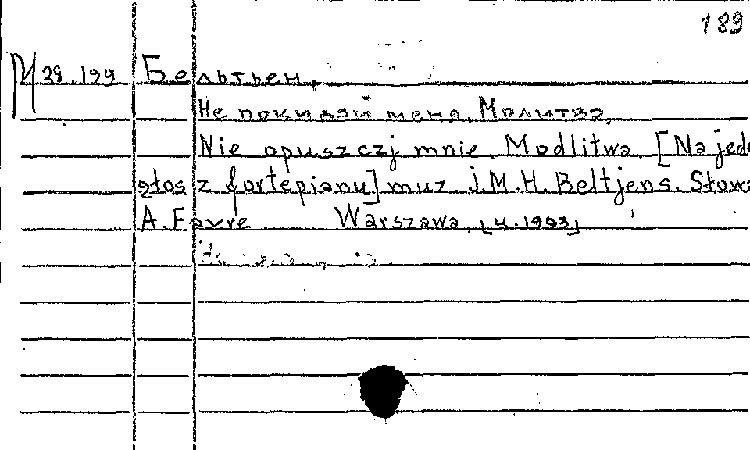 189
М 28.199 Бельтьен.
Не покидай меня. Молитва.
Nie opuszczj mnie. Modlitwa. [Na jede
głos z fortepianu] muz. J.M.H. Beltjens. Słowa
A. Favre Warszawa,